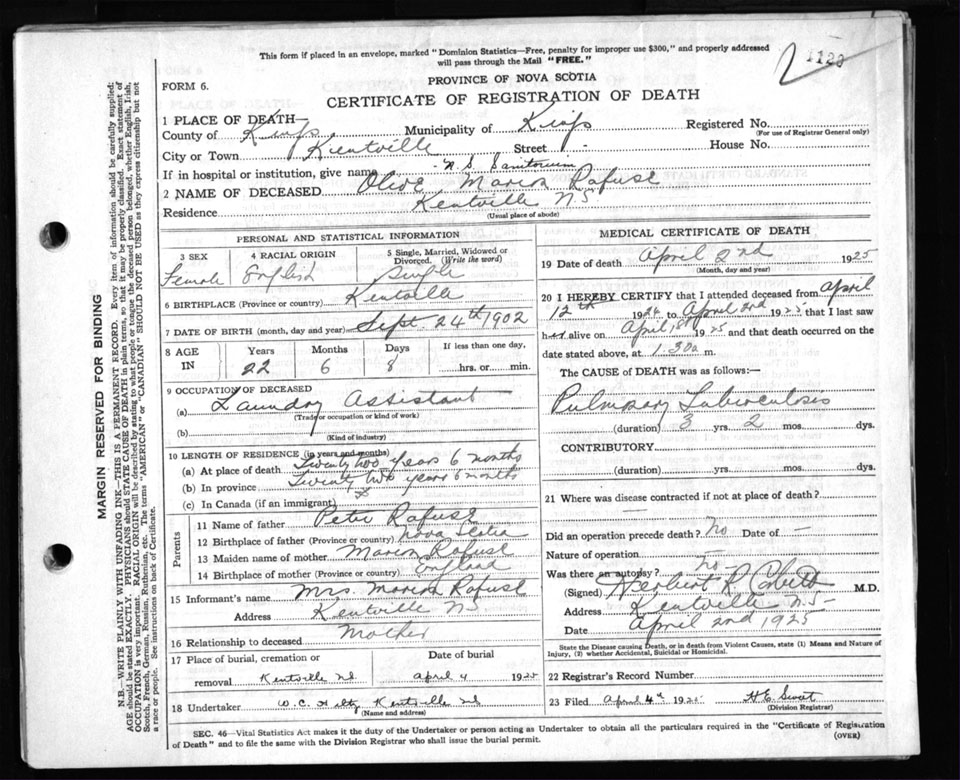 This form if placed in an envelope, marked "Dominion Statistics—Free, penalty for improper use $300," and properly addressed
will pass through the Mail "FREE."
1123
PROVINCE OF NOVA SCOTIA
FORM 6.
CERTIFICATE OF REGISTRATION OF DEATH
MARGIN RESERVED FOR BINDING
N.B.—WRITE PLAINLY WITH UNFADING INK—THIS IS A PERMANENT RECORD. Every item of information should be carefully supplied.
AGE should be stated EXACTLY. PHYSICIANS should STATE CAUSE OF DEATH in plain terms, so that it may be properly classified. Exact statement of
OCCUPATION is very important. RACIAL ORIGIN will be described by stating to what people or tongue the deceased person belonged, whether English, Irish,
Scotch, French, German, Russian, Ruthenian, etc. The terms "AMERICAN" or "CANADIAN" SHOULD NOT BE USED as they express citizenship but not
a race or people. See instructions on back of Certificate.
1 PLACE OF DEATH—
County of Kings Municipality of Kings Registered No.
(For use of Registrar General only)
City or Town Kentville Street - House No.
If in hospital or institution, give name N.S. Sanitorium
2 NAME OF DECEASED Olive Marion Rafuse
Residence Kentville N S
(Usual place of abode)
PERSONAL AND STATISTICAL INFORMATION
3 SEX 4 RACIAL ORIGIN 5 Single, Married, Widowed or Divorced. (Write the word)
Female English Single
6 BIRTHPLACE (Province or country) Kentville
7 DATE OF BIRTH (month, day and year) Sept. 24th 1902
8 AGE IN Years Months Days If less than one day,
22 6 8 hrs. or min.
9 OCCUPATION OF DECEASED
(a) Laundry Assistant
(Trade or occupation or kind of work)
(b)
(Kind of industry)
10 LENGTH OF RESIDENCE (in years and months)
(a) At place of death Twenty two years 6 months
(b) In province Twenty two years 6 months
(c) In Canada (if an immigrant)
Parents
11 Name of father Peter Rafuse
12 Birthplace of father (Province or country) Nova Scotia
13 Maiden name of mother Marion Rafuse
14 Birthplace of mother (Province or country) England
15 Informant's name Mrs. Marion Rafuse
Address Kentville NS
16 Relationship to deceased Mother
17 Place of burial, cremation or removal Date of burial
Kentville N.S. April 4 1925
18 Undertaker W.C. Kentville N.S.
(Name and address)
MEDICAL CERTIFICATE OF DEATH
19 Date of death April 2nd 1925
(Month, day and year)
20 I HEREBY CERTIFY that I attended deceased from April
12th 192 to April 2nd 1925, that I last saw
her alive on April 1st 1925 and that death occurred on the
date stated above, at 1.30a m.
The CAUSE of DEATH was as follows:—
Pulmonary Tuberculosis
(duration) 3 yrs. 2 mos. dys.
CONTRIBUTORY
(duration) yrs. mos. dys.
21 Where was disease contracted if not at place of death?
—
Did an operation precede death? No Date of —
Nature of operation
Was there an autopsy? No
(Signed) Herbert R Corbett M.D.
Address Kentville N.S-
Date April 2nd 1925
State the Disease causing Death, or in death from Violent Causes, state (1) Means and Nature of
Injury, (2) whether Accidental, Suicidal or Homicidal.
22 Registrar's Record Number
23 Filed April 4th 1925
(Division Registrar)
SEC. 46—Vital Statistics Act makes it the duty of the Undertaker or person acting as Undertaker to obtain all the particulars required in the "Certificate of Registration
of Death" and to file the same with the Division Registrar who shall issue the burial permit.
(OVER)